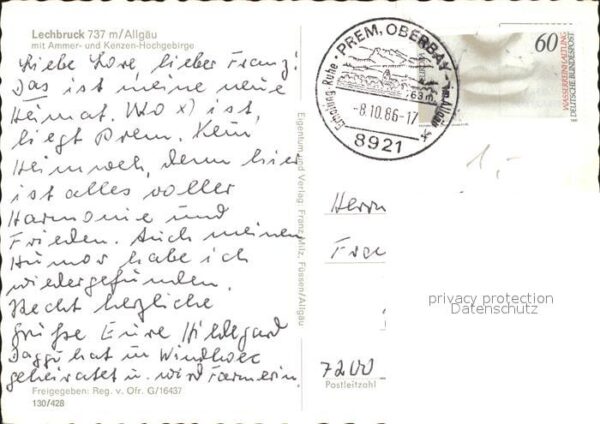 Lechbruck 737 m/Allgäu
mit Ammer- und Kenzen-Hochgebirge
Liebe Lore, lieber Franz!
Das ist meine neue
Heimat. Wo x) ist,
liegt Prem. Kein
Heimweh, denn hier
ist alles voller
Harmonie und
Frieden. Auch meinen
Humor habe ich
wiedergefunden.
Recht herzliche
Grüße Eure Hildegard
Daggi hat in Windhoek
geheiratet u. wird Farmerin.
Freigegeben: Reg. v. Ofr. G/16437
130/428
Eigentum und Verlag Franz Milz, Füssen/Allgäu
PREM, OBERBAY
Erholung Ruhe
im Allgäu
-8.10.86-17
8921
60
WASSERREINHALTUNG
DEUTSCHE BUNDESPOST
1,-
Herrn
privacy protection
Datenschutz
7200
Postleitzahl